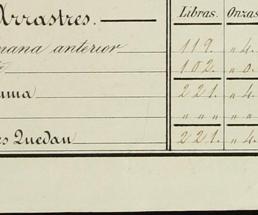 Arrastres. Libras. Onzas
mana anterior 119. „ 4.
102. „ 0.
uma 221. „ 4.
„ „ „ „ „
es Quedan 221. „ 4.